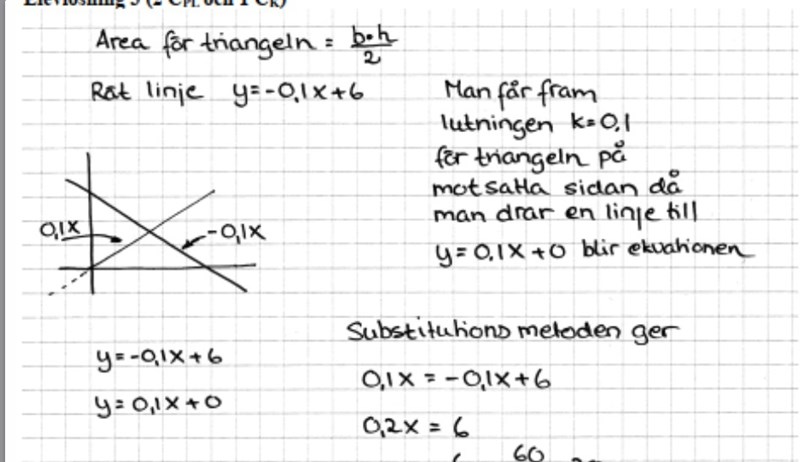 Area för triangeln = b·h/2
Rät linje y=-0,1x+6
Man får fram
lutningen k=0,1
för triangeln på
motsatta sidan då
man drar en linje till
y=0,1x+0 blir ekvationen
0,1x
-0,1x
Substitutions metoden ger
y=-0,1x+6
y=0,1x+0
0,1x = -0,1x+6
0,2x = 6
60